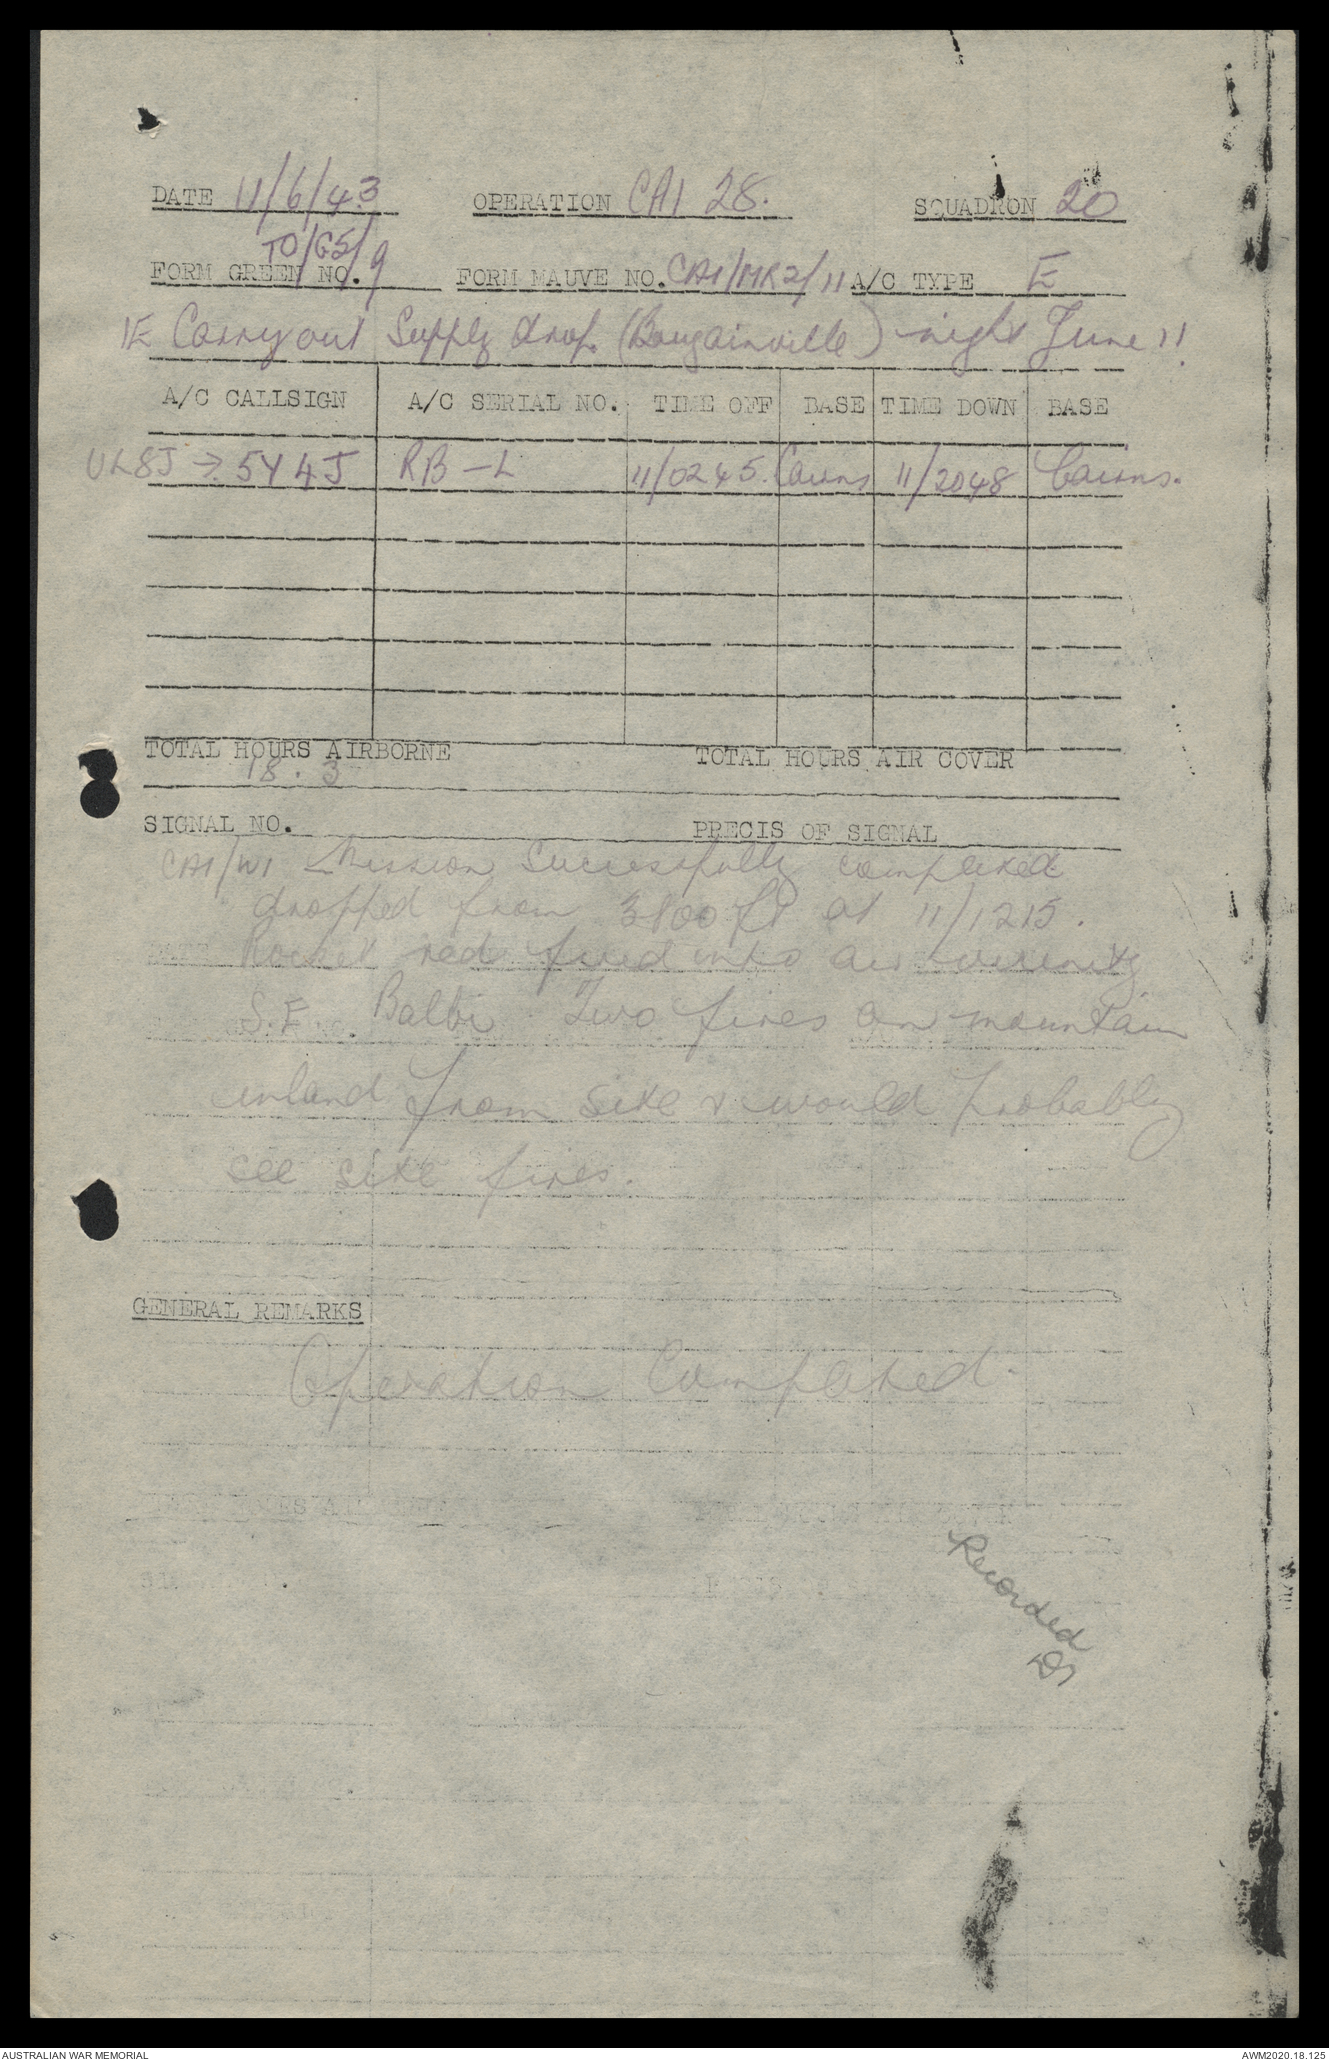 DATE 11/6/43 OPERATION CA1 28. SQUADRON 20
TO/G5/9
FORM GREEN NO. FORM MAUVE NO. CA1/MR2/11 A/C TYPE E
1E Carry out Supply drop. (Bougainville) night June 11.
A/C CALLSIGN A/C SERIAL NO. TIME OFF BASE TIME DOWN BASE
UL8J → 5Y4J RB-L 11/0245. Cairns 11/2048 Cairns.
TOTAL HOURS AIRBORNE TOTAL HOURS AIR COVER
18.3
SIGNAL NO. PRECIS OF SIGNAL
CA1/W1 Mission Successfully completed
dropped from 3800 ft at 11/1215.
Rocket red fired into air vicinity
S.E. Balbi Two fires on mountain
inland from site & would probably
see site fires.
GENERAL REMARKS
Operation Completed.
Recorded
AUSTRALIAN WAR MEMORIAL AWM2020.18.125